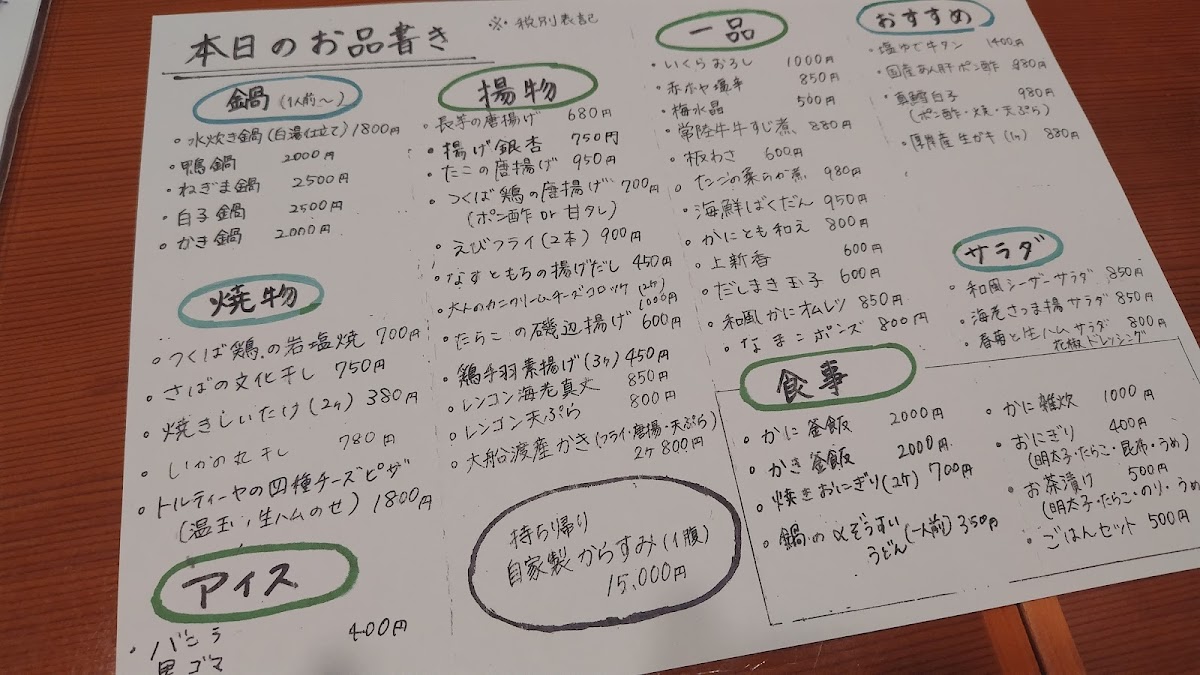 本日のお品書き
※税別表記
鍋(1人前〜)
・水炊き鍋(白湯仕立て) 1800円
・鴨鍋 2000円
・ねぎま鍋 2500円
・白子鍋 2500円
・かき鍋 2000円
焼物
・つくば鶏の岩塩焼 700円
・さばの文化干し 750円
・焼きしいたけ(2ヶ) 380円
・いかの丸干し 780円
・トルティーヤの四種チーズピザ
(温玉、生ハムのせ) 1800円
アイス
・バニラ 400円
黒ゴマ
揚物
・長芋の唐揚げ 680円
・揚げ銀杏 750円
・たこの唐揚げ 950円
・つくば鶏の唐揚げ 700円
(ポン酢 or 甘タレ)
・えびフライ(2本) 900円
・なすともちの揚げだし 450円
・大人のカニクリームチーズコロッケ(2ヶ)
1000円
・たらこの磯辺揚げ 600円
・鶏手羽素揚げ(3ヶ) 450円
・レンコン海老真丈 850円
・レンゴン天ぷら 800円
・大船渡産かき(フライ・唐揚・天ぷら)
2ヶ800円
持ち帰り
自家製からすみ(1腹)
15,000円
一品
・いくらおろし 1000円
・赤ホヤ塩辛 850円
・梅水晶 500円
・常陸牛牛すじ煮 880円
・板わさ 600円
・たこの柔らか煮 980円
・海鮮ばくだん 950円
・かにとも和え 800円
・上新香 600円
・だしまき玉子 600円
・和風かにオムレツ 850円
・なまこポンズ 800円
おすすめ
・塩ゆで牛タン 1400円
・国産あん肝ポン酢 980円
・真鱈白子 980円
(ポン酢・焼・天ぷら)
・厚岸産生ガキ(1ヶ) 880円
サラダ
・和風シーザーサラダ 850円
・海老さつま揚サラダ 850円
・春菊と生ハムサラダ 800円
花椒ドレッシング
食事
・かに釜飯 2000円
・かき釜飯 2000円
・焼きおにぎり(2ケ) 700円
・鍋の〆ぞうすい
うどん(一人前) 350円
・かに雑炊 1000円
・おにぎり 400円
(明太子・たらこ・昆布・うめ)
・お茶漬け 500円
(明太子・たらこ・のり・うめ
・ごはんセット 500円